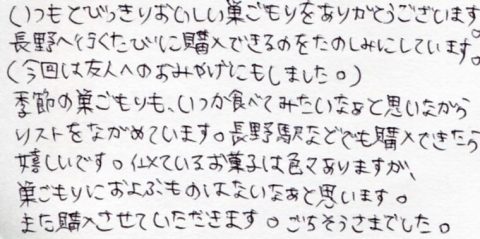 いつもとびっきりおいしい巣ごもりをありがとうございます。
長野へ行くたびに購入できるのをたのしみにしています。
(今回は友人へのおみやげにもしました。)
季節の巣ごもりも、いつか食べてみたいなぁと思いながら
リストをながめています。長野駅などでも購入できたら
嬉しいです。似ているお菓子は色々ありますが、
巣ごもりにおよぶものはないなぁと思います。
また購入させていただきます。ごちそうさまでした。